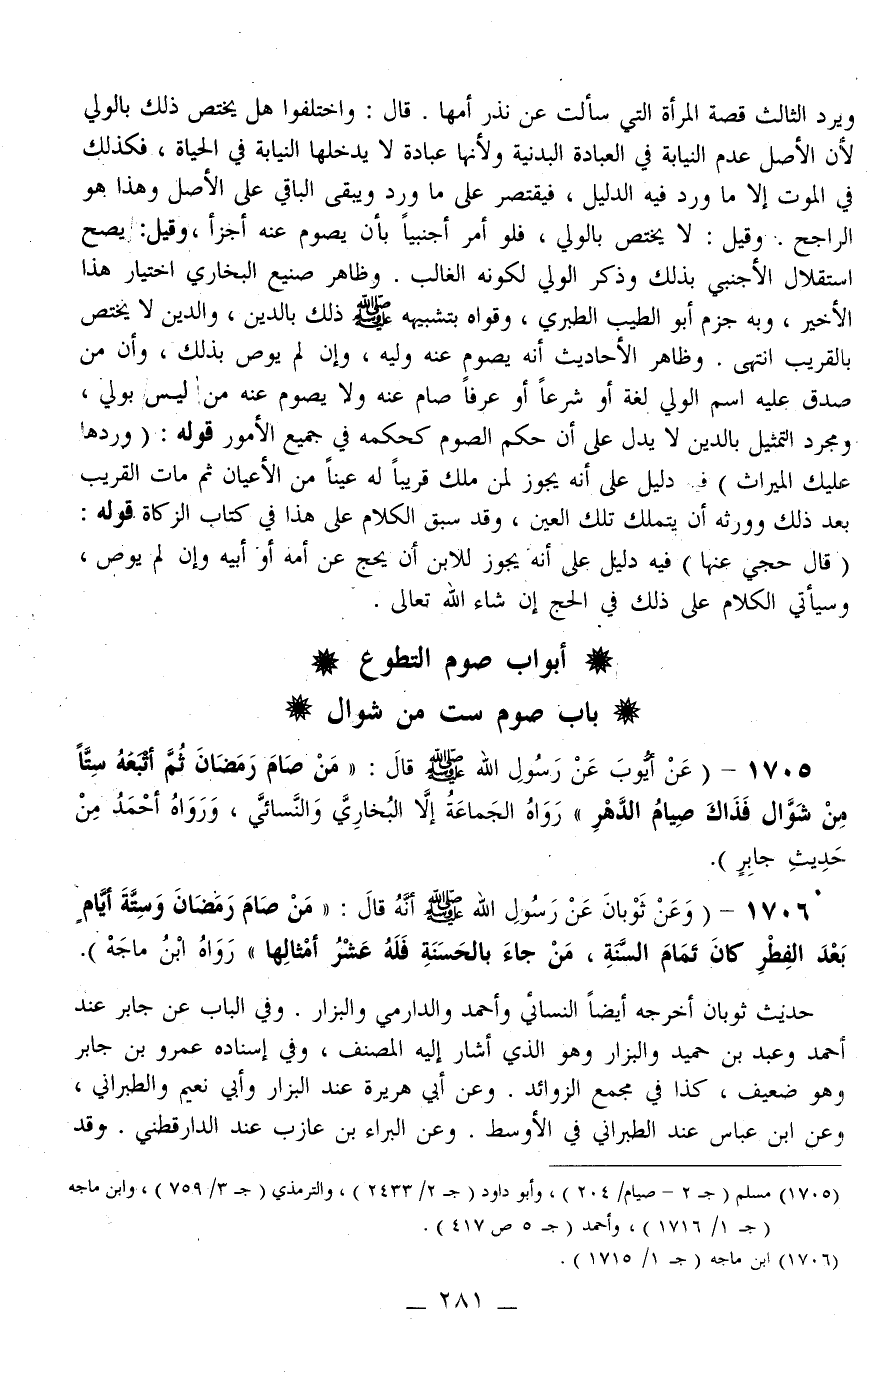 ويرد الثالث قصة المرأة التي سألت عن نذر أمها . قال : واختلفوا هل يختص ذلك بالولي
لأن الأصل عدم النيابة في العبادة البدنية ولأنها عبادة لا يدخلها النيابة في الحياة ، فكذلك
في الموت إلا ما ورد فيه الدليل ، فيقتصر على ما ورد ويبقى الباقي على الأصل وهذا هو
الراجح . وقيل : لا يختص بالولي ، فلو أمر أجنبياً بأن يصوم عنه أجزأ ،وقيل: يصح
استقلال الأجنبي بذلك وذكر الولي لكونه الغالب . وظاهر صنيع البخاري اختيار هذا
الأخير ، وبه جزم أبو الطيب الطبري ، وقواه بتشبيهه ﷺ ذلك بالدين ، والدين لا يختص
بالقريب انتهى . وظاهر الأحاديث أنه يصوم عنه وليه ، وإن لم يوص بذلك ، وأن من
صدق عليه اسم الولي لغة أو شرعاً أو عرفاً صام عنه ولا يصوم عنه من ليس بولي ،
ومجرد التمثيل بالدين لا يدل على أن حكم الصوم كحكمه في جميع الأمور قوله : ( وردها
عليك الميراث ) فـ دليل على أنه يجوز لمن ملك قريباً له عيناً من الأعيان ثم مات القريب
بعد ذلك وورثه أن يتملك تلك العين ، وقد سبق الكلام على هذا في كتاب الزكاة قوله :
( قال حجي عنها ) فيه دليل على أنه يجوز للابن أن يحج عن أمه أو أبيه وإن لم يوص ،
وسيأتي الكلام على ذلك في الحج إن شاء الله تعالى .
أبواب صوم التطوع
باب صوم ست من شوال
١٧٠٥ – ( عَنْ أَيُّوبَ عَنْ رَسُولِ الله ﷺ قالَ : « مَنْ صَامَ رَمَضَانَ ثُمَّ أتْبَعَهُ سِتًّا
مِنْ شَوَّالٍ فَذَاكَ صِيامُ الدَّهْرِ » رَوَاهُ الجَماعَةُ إلَّا البُخارِيَّ وَالنَّسائيَّ ، وَرَوَاهُ أحْمَدُ مِنْ
حَدِيثِ جابِرٍ ).
١٧٠٦ – ( وَعَنْ ثَوْبانَ عَنْ رَسُولِ الله ﷺ أنَّهُ قالَ : « مَنْ صَامَ رَمَضَانَ وَسِتَّةَ أيَّامٍ
بَعْدَ الفِطْرِ كانَ تَمَامَ السَّنَةِ ، مَنْ جاءَ بالحَسَنَةِ فَلَهُ عَشْرُ أمْثالِها » رَوَاهُ ابْنُ ماجَهْ ).
حديث ثوبان أخرجه أيضاً النسائي وأحمد والدارمي والبزار . وفي الباب عن جابر عند
أحمد وعبد بن حميد والبزار وهو الذي أشار إليه المصنف ، وفي إسناده عمرو بن جابر
وهو ضعيف ، كذا في مجمع الزوائد . وعن أبي هريرة عند البزار وأبي نعيم والطبراني ،
وعن ابن عباس عند الطبراني في الأوسط . وعن البراء بن عازب عند الدارقطني . وقد
(١٧٠٥) مسلم ( جـ ٢ – صيام/ ٢٠٤ ) ، وأبو داود ( جـ ٢/ ٢٤٣٣ ) ، والترمذي ( جـ ٣/ ٧٥٩ ) ، وابن ماجه
( جـ ١/ ١٧١٦ ) ، وأحمد ( جـ ٥ ص ٤١٧ ) .
(١٧٠٦) ابن ماجه ( جـ ١/ ١٧١٥ ) .
ــ ٢٨١ ــ